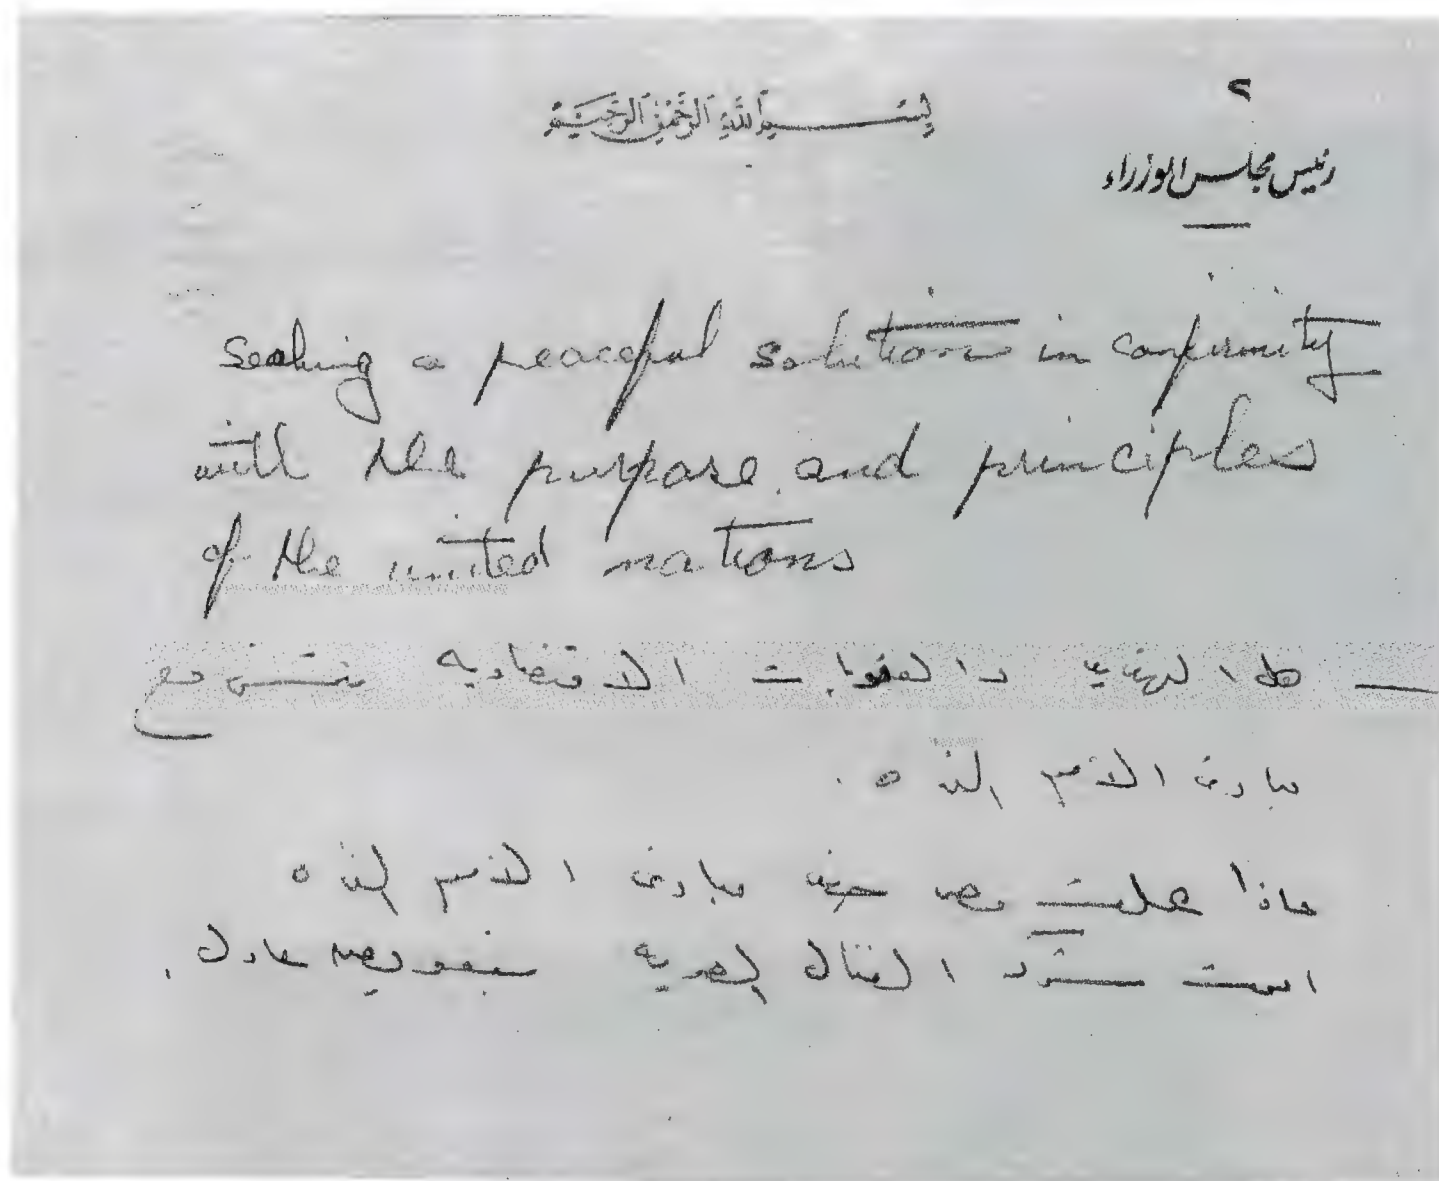 ٢
بسم الله الرحمن الرحيم
رئيس مجلس الوزراء
seeking a peaceful solution in conformity
with the purpose and principles
of the united nations
— هل التهديد والعقوبات الاقتصادية تتمشى مع
مبادئ الامم المتحدة
ماذا عملت مصر ضد مبادئ الامم المتحدة
اممت شركة القنال المصرية بتعويض عادل .